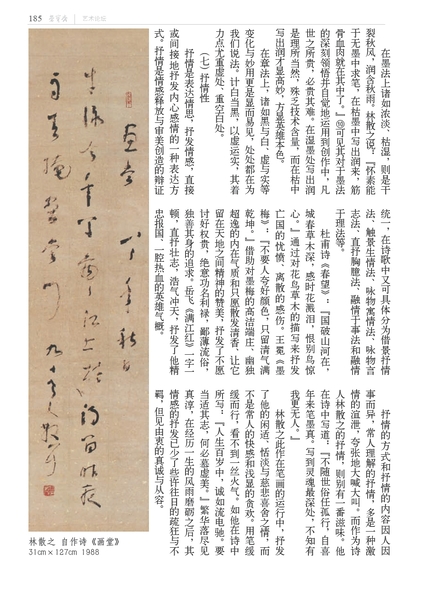 185
艺术论坛
在墨法上诸如浓淡、枯湿，则是干
裂秋风，润含秋雨。林散之说，『怀素能
于无墨中求笔，在枯墨中写出润来，筋
骨血肉就在其中了。』可见其对于墨法
的深刻领悟并自觉地运用到创作中，凡
世之所贵，必贵其难。在湿墨处写出润
是理所当然，殊乏技术含量，而在枯中
写出润才显高妙，方显英雄本色。
在章法上，诸如黑与白、虚与实等
变化与妙用更是显而易见，处处都在为
我们说法，计白当黑，以虚运实，其着
力点尤重虚处，重空白处。
（七）抒情性
抒情是表达情思，抒发情感，直接
或间接地抒发内心感情的一种表达方
式。抒情是情感释放与审美创造的辩证
统一，在诗歌中又可具体分为借景抒情
法、触景生情法、咏物寓情法、咏物言
志法、直抒胸臆法、融情于事法和融情
于理法等。
杜甫诗《春望》：『国破山河在，
城春草木深，感时花溅泪，恨别鸟惊
心。』通过对花鸟草木的描写来抒发
亡国的忧愤、离散的感伤。王冕《墨
梅》：『不要人夸好颜色，只留清气满
乾坤。』借助对墨梅的高洁端庄、幽独
超逸的内在气质和只愿散发清香，让它
留在天地之间精神的赞美，抒发了不愿
讨好权贵、绝意功名利禄，鄙薄流俗，
独善其身的追求。岳飞《满江红》一字一
顿，直抒壮志，浩气冲天，抒发了他精
忠报国，一腔热血的英雄气概。
抒情的方式和抒情的内容因人因
事而异，常人理解的抒情，多是一种激
情的渲泄、夸张地大喊大叫。而作为诗
人林散之的抒情，则别有一番滋味。他
在诗中写道：『不随世俗任孤行，自喜
年来笔墨真。写到灵魂最深处，不知有
我更无人。』
林散之此作在笔画的运行中，抒发
了他的闲适、恬淡与慈悲喜舍之情，而
不是常人的快感和浅显的贪欢。用笔缓
缓而行，看不到一丝火气。如他在诗中
所写：『人生百岁中，诚如流电驰。要
当适其志，何必墓虚美。』繁华落尽见
真淳，在经历一生的风雨磨砺之后，其
情感的抒发已少了些许往日的疏狂与不
羁，但见由衷的真诚与从容。
林散之 自作诗《画堂》
31cm×127cm 1988